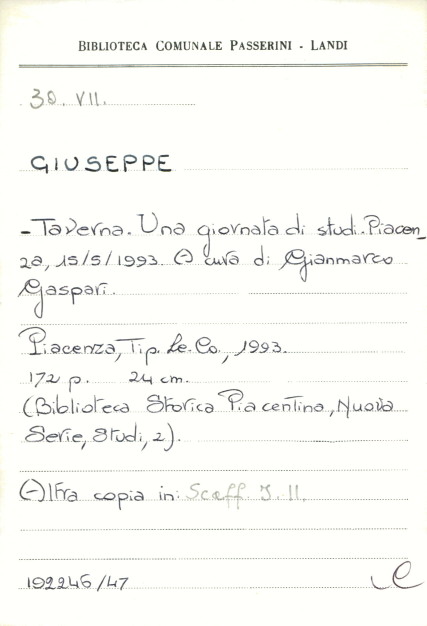 BIBLIOTECA COMUNALE PASSERINI - LANDI
30. VII.
GIUSEPPE
- Taverna. Una giornata di studi. Piacen_
za, 15/5/1993. A cura di Gianmarco
Gaspari.
Piacenza, Tip. Le. Co., 1993.
172 p. 24 cm.
(Biblioteca Storica Piacentina, Nuova
Serie, Studi, 2).
Altra copia in: Scaff. J. 11.
192246/47